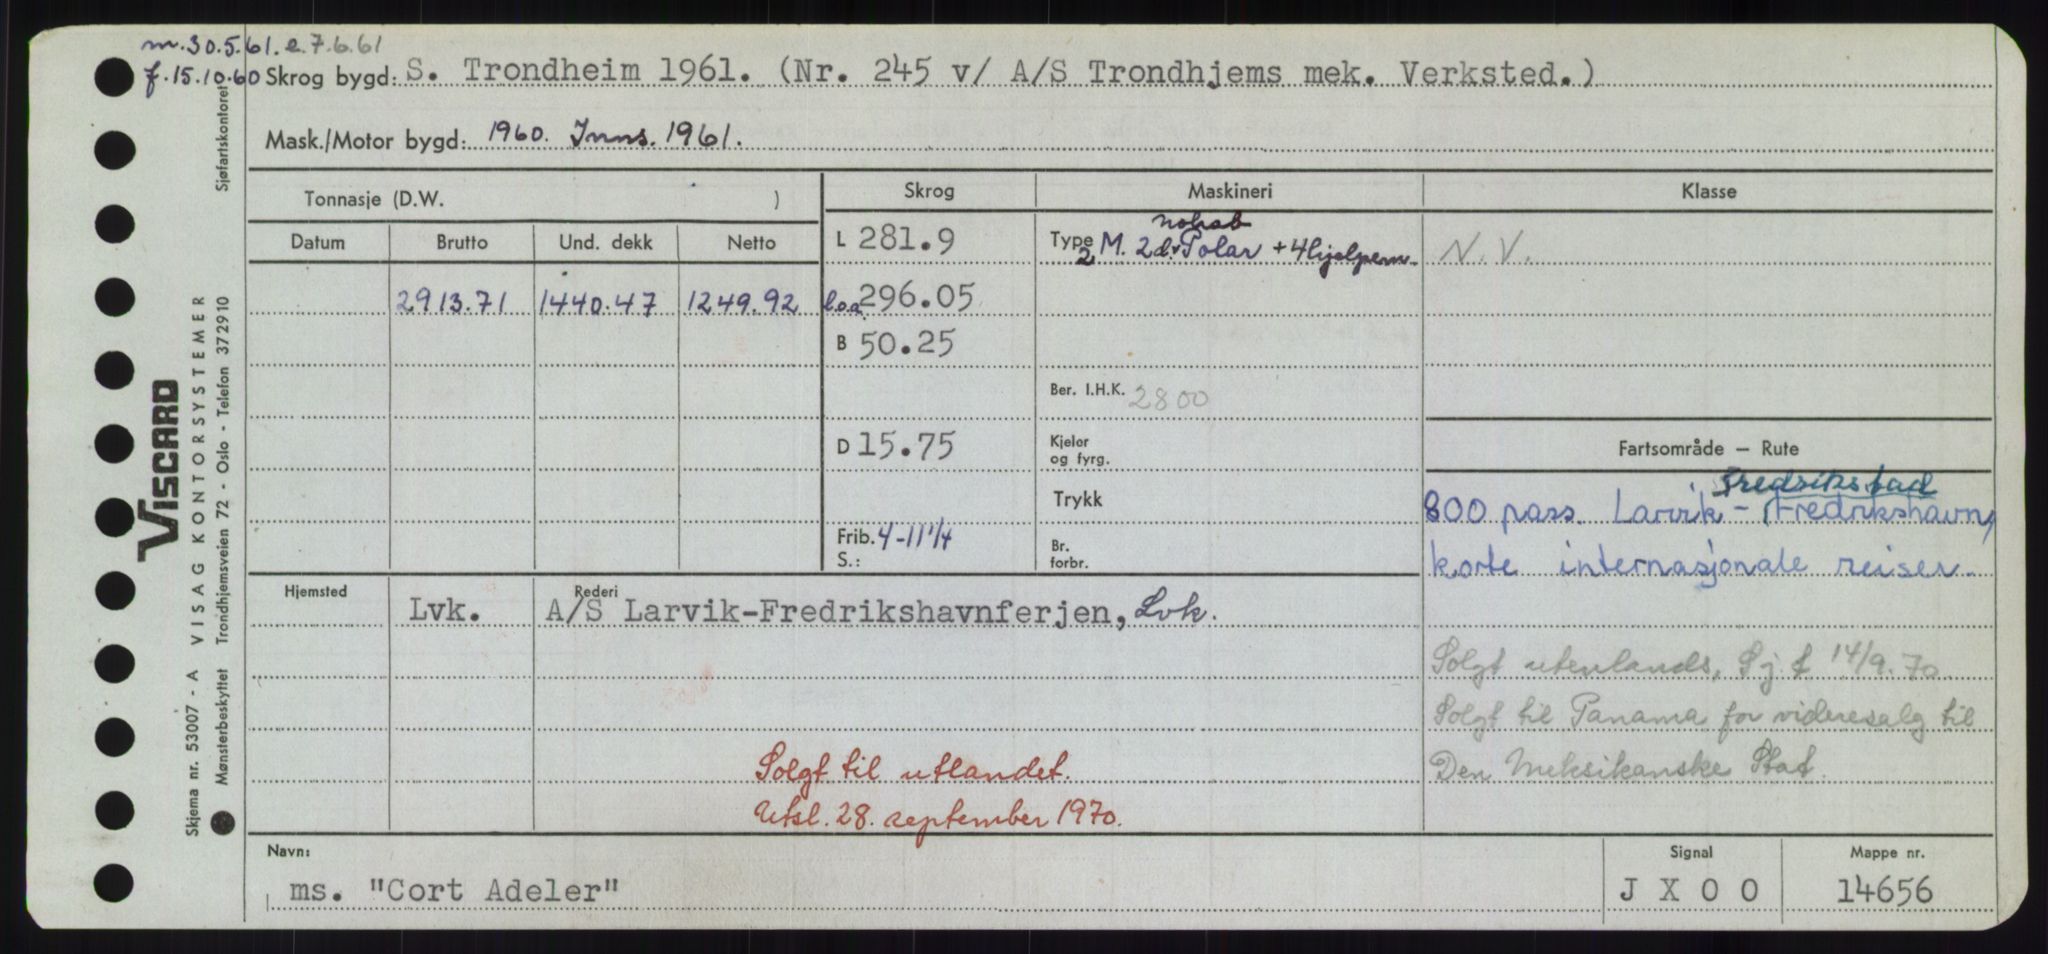 m. 30.5.61. e. 7.6.61
f. 15.10.60 Skrog bygd: S. Trondheim 1961. (Nr. 245 v/ A/S Trondhjems mek. Verksted.)
Mask./Motor bygd: 1960. Inns. 1961.
Tonnasje (D.W. ) Skrog Maskineri Klasse
Datum Brutto Und. dekk Netto
L 281.9 Type 2 M. 2d. Polar + 4 hjelpem. N.V.
nohab
2913.71 1440.47 1249.92 l.o.a 296.05
B 50.25
Ber. I.H.K. 2800
D 15.75 Kjeler og fyrg. Fartsområde — Rute
Fredrikstad
Trykk 800 pass. Larvik - Fredrikshavn,
Frib. 4-11 1/4 Br. korte internasjonale reiser.
S.: forbr.
Hjemsted Rederi
Lvk. A/S Larvik-Fredrikshavnferjen, Lvk.
Solgt utenlands, Sj. f 14/9.70
Solgt til Panama for videresalg til
Solgt til utlandet. Den Meksikanske Stat.
Utsl. 28. september 1970.
Navn: Signal Mappe nr.
ms. "Cort Adeler" J X O O 14656
VISCARD
Skjema nr. 53007 - A VISAG KONTORSYSTEMER
Mønsterbeskyttet Trondhjemsveien 72 - Oslo - Telefon 372910 Sjøfartskontoret